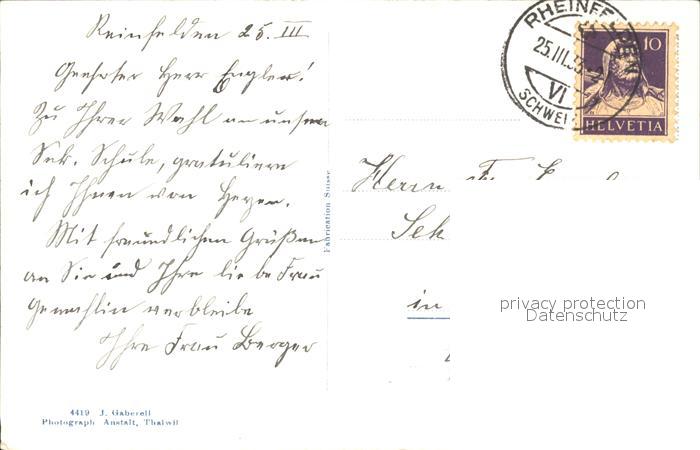 Reinfelden 25. III
Geehrter Herr Engler!
Zu Ihrer Wahl an unsere
Sek. Schule, gratuliere
ich Ihnen von Herzen.
Mit freundlichen Grüßen
an Sie und Ihre liebe Frau
Gemahlin verbleibe
Ihre Frau Berger
4419 J. Gaberell
Photograph Anstalt, Thalwil
Fabrication Suisse
RHEINFELDEN
25.III.
VI
SCHWEIZ
10
HELVETIA
Herrn
Sek
in
privacy protection
Datenschutz